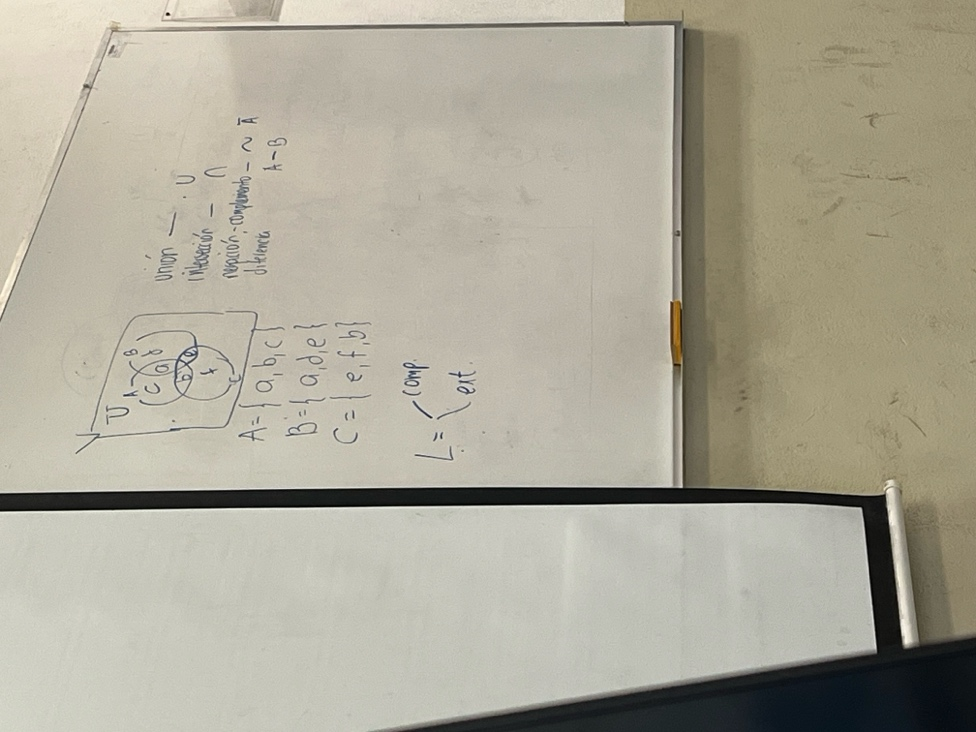 U
A B
c a d
b e
f
C
A = { a, b, c }
B = { a, d, e }
C = { e, f, b }
L = comp.
ext.
unión — . U
intersección — ∩
negación - complemento - ~ Ā
diferencia A - B